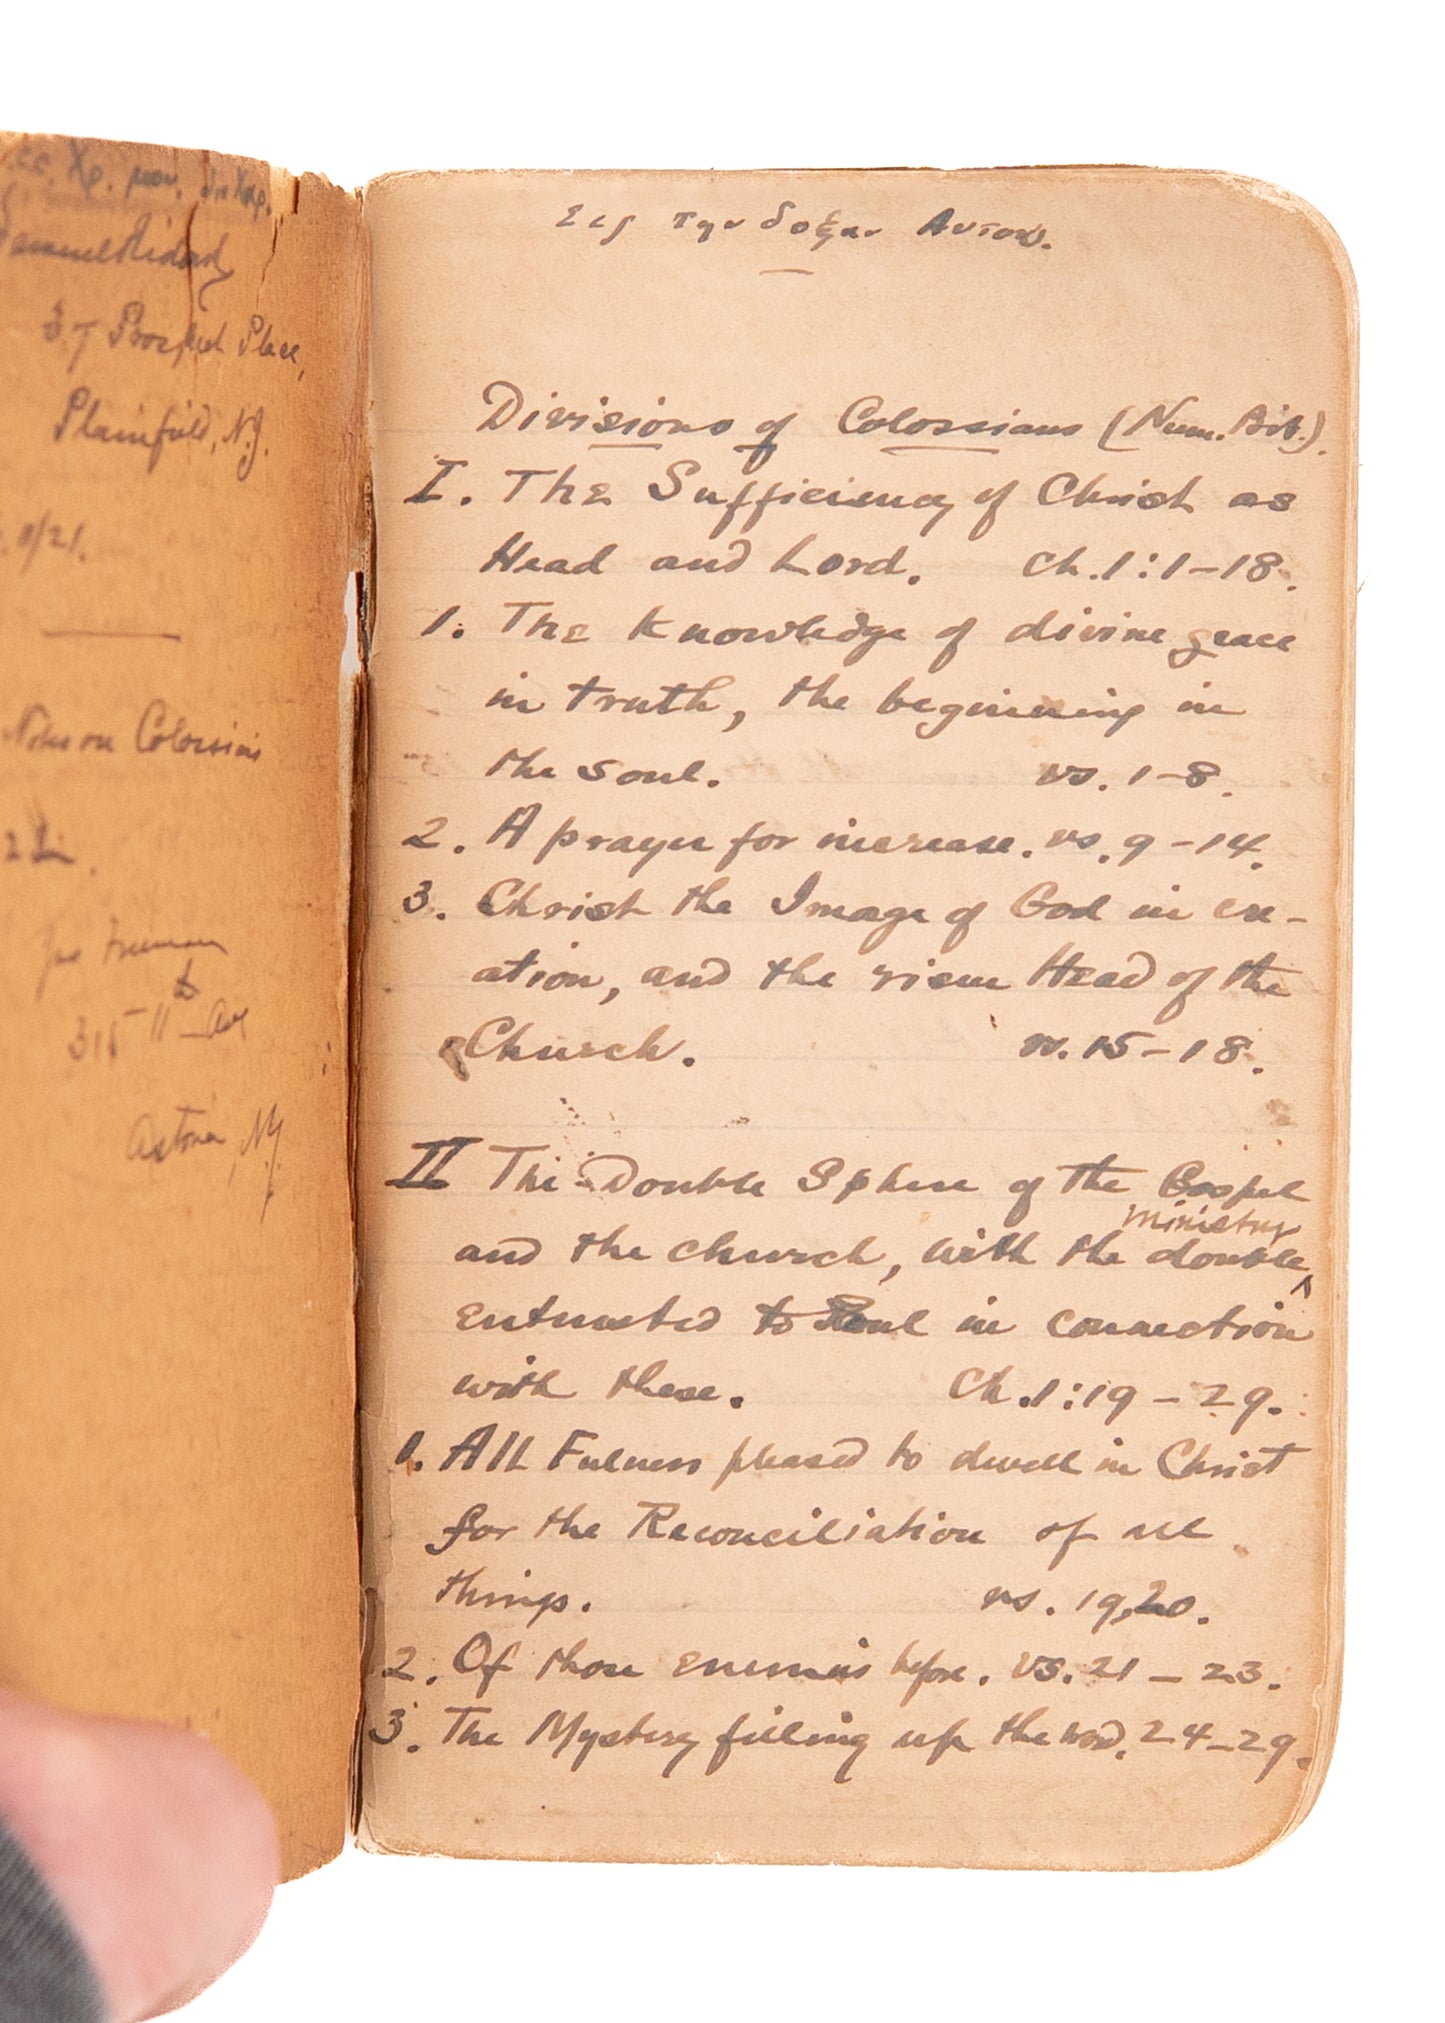 Χρ.
Samuel Ridout
37 Prospect Place,
Plainfield, N.J.
11/21.
Notes on Colossians
315 11th Ave
Astoria, N.Y.
Εις την δοξαν Αυτου.
Divisions of Colossians (Num. Bib.).
I. The Sufficiency of Christ as
Head and Lord. Ch. 1:1-18.
1. The Knowledge of divine grace
in truth, the beginning in
the soul. vs. 1-8.
2. A prayer for increase. vs. 9-14.
3. Christ the Image of God in cre-
ation, and the risen Head of the
Church. vv. 15-18.
II The Double Sphere of the Gospel
and the church, with the double ^ministry
entrusted to Paul in connection
with these. Ch. 1:19-29.
1. All Fulness pleased to dwell in Christ
for the Reconciliation of all
things. vs. 19,20.
2. Of those enemies before. vs. 21-23.
3. The Mystery filling up the word. 24-29.